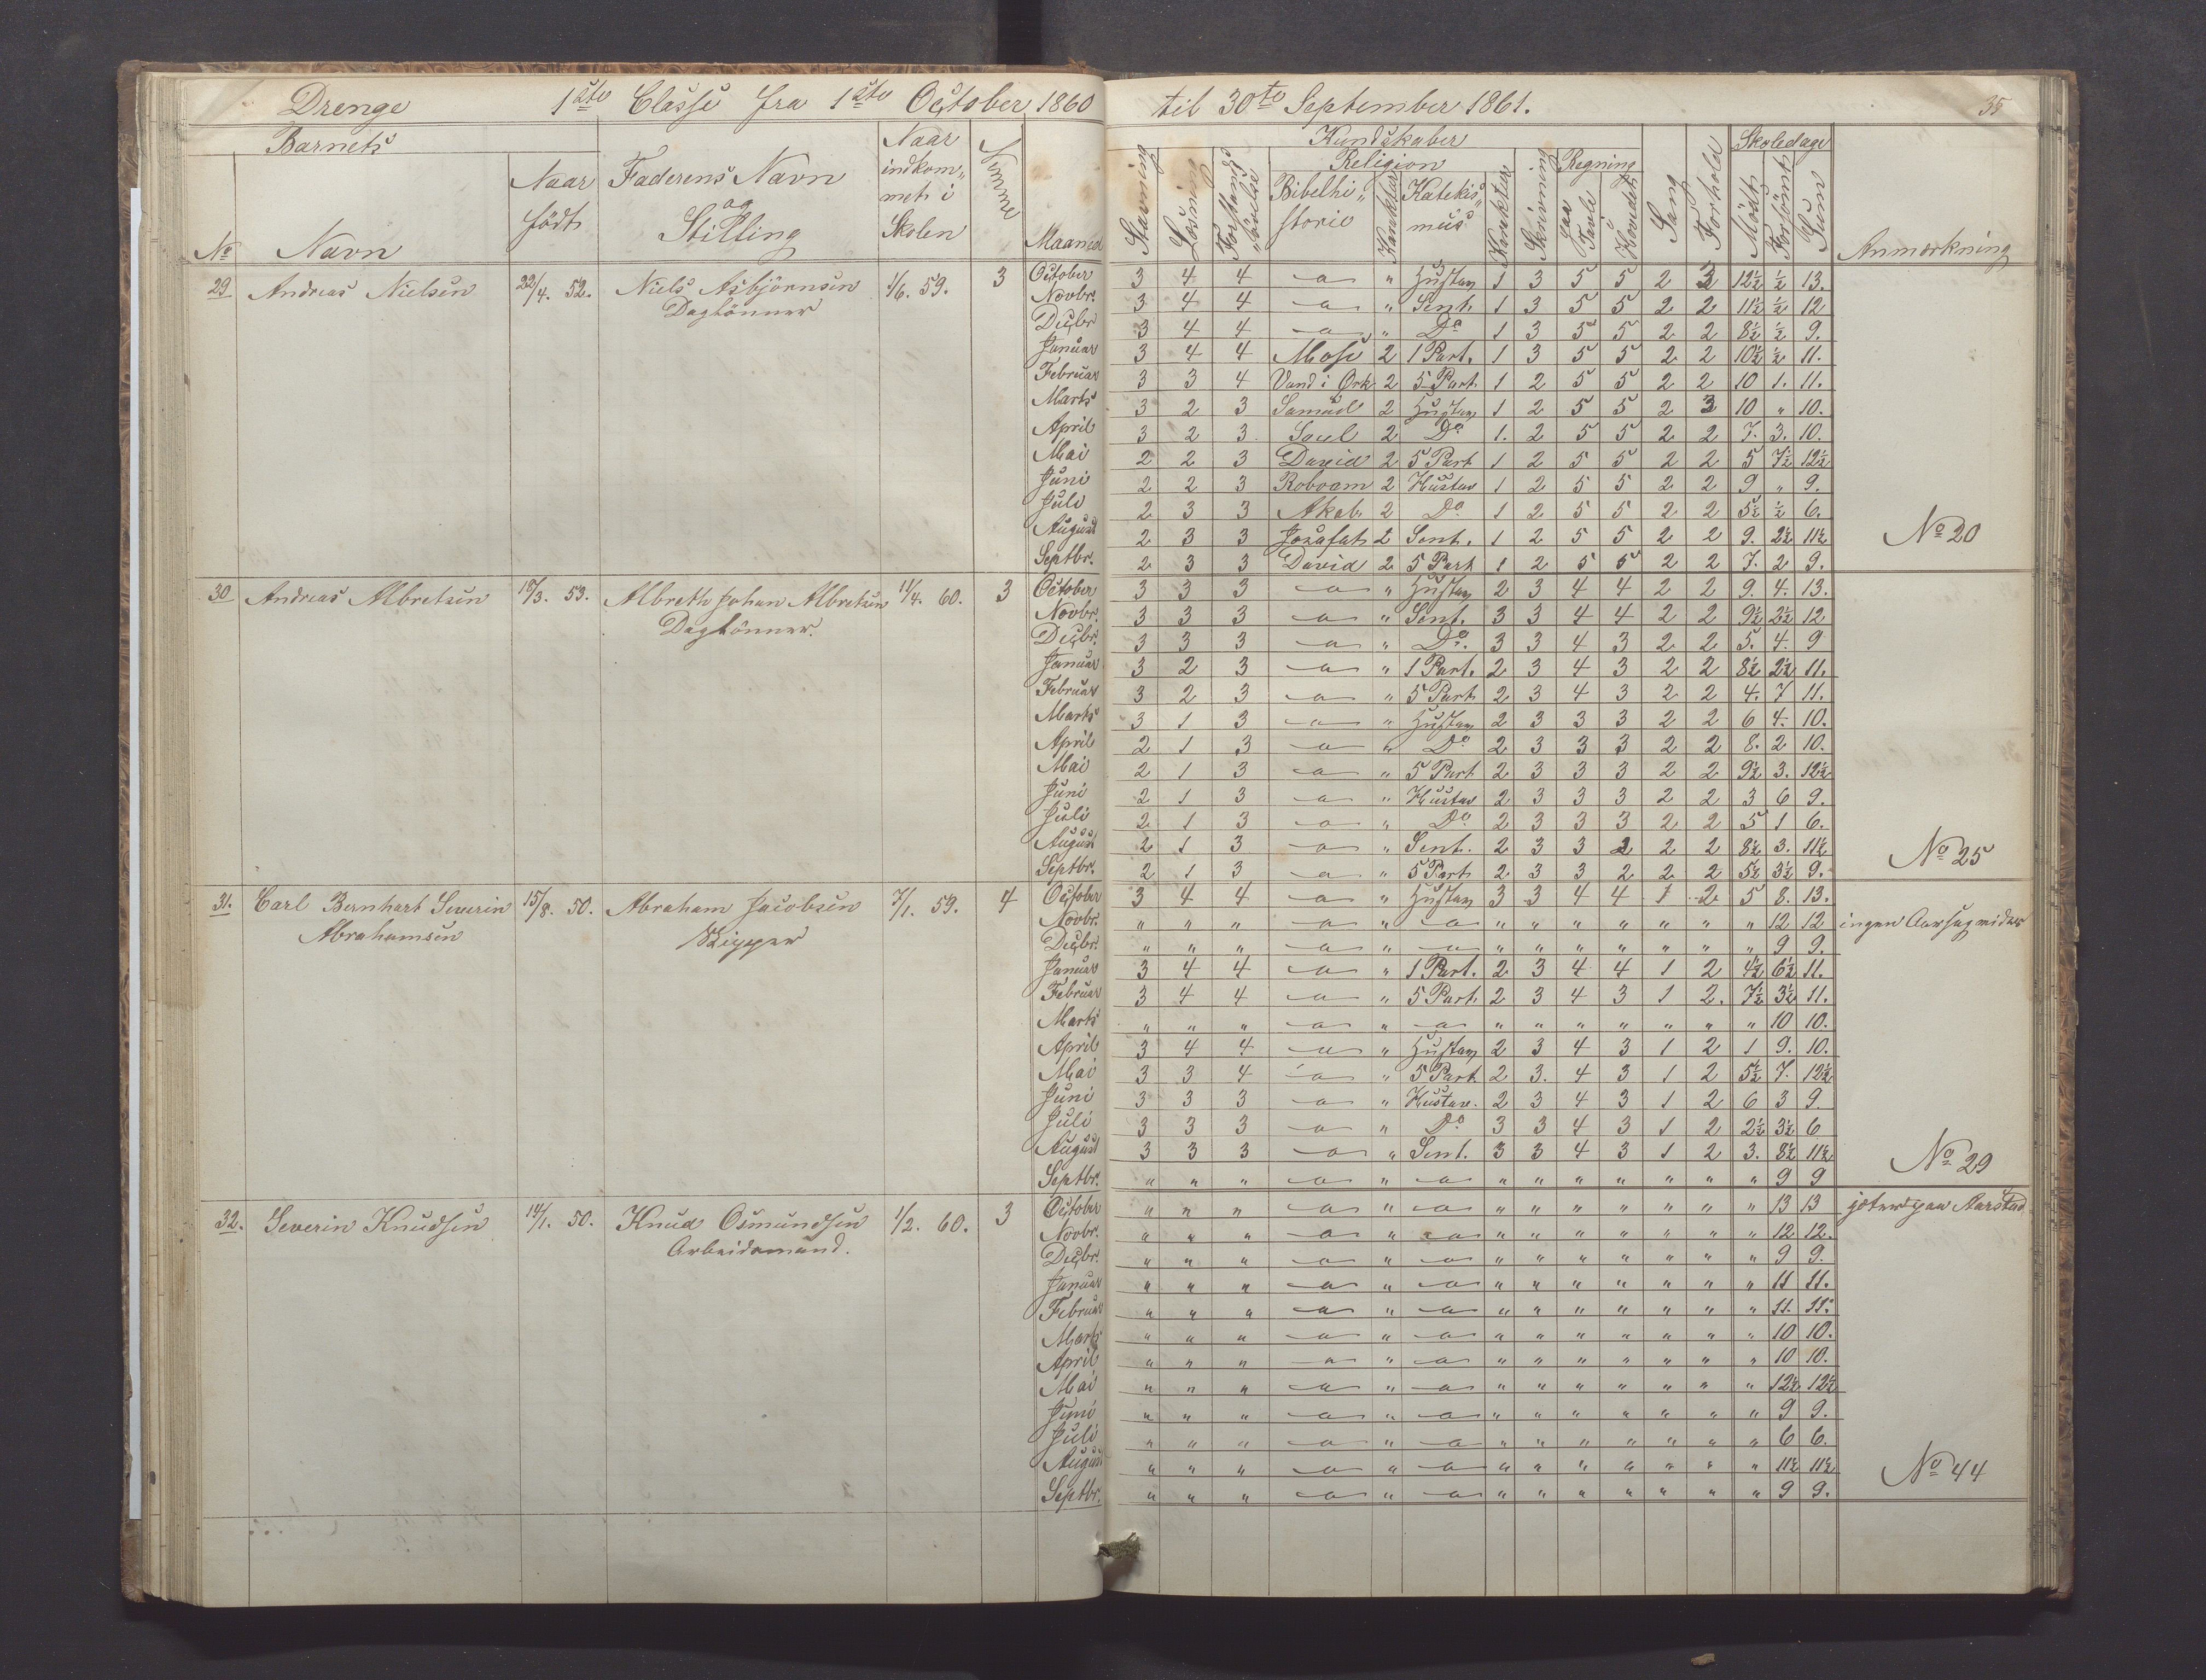 Drenge 1ste Classe fra 1ste October 1860 til 30te September 1861. 35
Barnets
Kundskaber
No Navn Naar födt Faderens Navn og Stilling Naar indkommet i Skolen Nemme Maaned
Stavning Læsning Forstands Øvelse Religion Bibelhistorie Karakter Katekismus Karakter Skrivning Regning paa Tavle i Hovedet Sang Forhold Skoledage Mödt Forsömt Sum Anmærkning
29 Andreas Nielsen 22/4. 52. Niels Asbjörnsen 1/6. 59. 3 October 3 4 4 " Hustav 1 3 5 5 2 3 12½ ½ 13.
Daglönner Novbr. 3 4 4 " Sent. 1 3 5 5 2 2 11½ ½ 12
Decbr 3 4 4 " Do 1 3 5 5 2 2 8½ ½ 9.
Januar 3 4 4 Mose 2 1 Part. 1 3 5 5 2 2 10½ ½ 11.
Februar 3 3 4 Vand i Ørk 2 5 Part 1 2 5 5 2 2 10 1. 11.
Marts 3 2 3 Samuel 2 Hustav 1 2 5 5 2 3 10 " 10.
April 3 2 3. Saul 2 Do 1. 2 5 5 2 2 7. 3. 10.
Mai 2 2 3 David 2 5 Part 1 2 5 5 2 2 5 7½ 12½
Juni 2 2 3 Roboam 2 Hustav 1 2 5 5 2 2 9 " 9.
Juli 2 3 3 Akab. 2 Do 1 2 5 5 2 2 5½ ½ 6.
August 2 3 3 Josafat 2 Sent. 1 2 5 5 2 2 9. 2½ 11½ No 20
Septbr. 2 3 3 David 2 5 Part 1 2 5 5 2 2 7. 2 9.
30 Andreas Albretsen 18/3. 53. Albreth Johan Albretsen 11/4. 60. 3 October 3 3 3 " Hustav 2 3 4 4 2 2 9. 4. 13.
Daglönner. Novbr. 3 3 3 " Sent. 3 3 4 4 2 2 9½ 2½ 12
Decbr. 3 3 3 " Do. 3 3 4 3 2 2 5. 4. 9
Januar 3 2 3 " 1 Part. 2 3 4 3 2 2 8½ 2½ 11.
Februar 3 2 3 " 5 Part 2 3 4 3 2 2 4. 7 11.
Marts 3 1 3 " Hustav 2 3 3 3 2 2 6 4. 10.
April 2 1 3 " Do 2 3 3 3 2 2 8. 2 10.
Mai 2 1 3 " 5 Part 2 3 3 3 2 2 9½ 3. 12½
Juni 2 1 3 " Hustav 2 3 3 3 2 2 3 6 9.
Juli 2 1 3 " Do 2 3 3 3 2 2 5 1 6.
August 2 1 3 " Sent. 2 3 3 2 2 2 8½ 3. 11½ No 25
Septbr. 2 1 3 " 5 Part 2 3 3 2 2 2 5½ 3½ 9.
31. Carl Bernhart Severin 15/8. 50. Abraham Jacobsen 7/1. 59. 4 October 3 4 4 " Hustav 3 3 4 4 1 2 5 8. 13.
Abrahamsen Skipper Novbr. " " " " " " " " " " " 12 12 ingen Aarsag vides
Decbr. " " " " " " " " " " " 9 9.
Januar 3 4 4 " 1 Part. 2 3 4 4 1 2 4½ 6½ 11.
Februar 3 4 4 " 5 Part. 2 3 4 3 1 2. 7½ 3½ 11.
Marts " " " " " " " " " " " 10 10.
April 3 4 4 " Hustav 2 3 4 3 1 2 1 9. 10.
Mai 3 3 4 " 5 Part 2 3. 4 3 1 2 5½ 7. 12½
Juni 3 3 3 " Hustav. 2 3 4 3 1 2 6 3 9.
Juli 3 3 3 " Do 3 3 4 3 1 2 2½ 3½ 6
August 3 3 3 " Sent. 3 3 4 3 1 2 3. 8½ 11½ No 29
Septbr. " " " " " " " " " " " 9 9
32. Severin Knudsen 14/1. 50. Knud Osmundsen 1/2. 60. 3 October " " " " " " " " " " " 13 13 jæter paa Aarstad
Arbeidsmand. Novbr. " " " " " " " " " " " 12 12.
Decbr. " " " " " " " " " " " 9 9.
Januar " " " " " " " " " " " 11 11.
Februar " " " " " " " " " " " 11. 11.
Marts " " " " " " " " " " " 10 10.
April " " " " " " " " " " " 10 10.
Mai " " " " " " " " " " " 12½ 12½
Juni " " " " " " " " " " " 9 9.
Juli " " " " " " " " " " " 6 6.
August " " " " " " " " " " " 11½ 11½ No 44
Septbr. " " " " " " " " " " " 9 9.